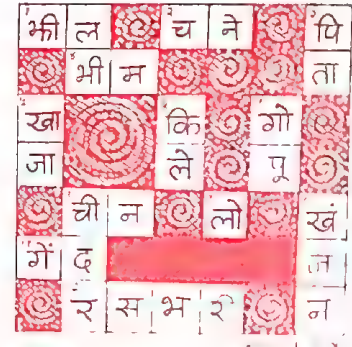 झी ल च ने पि
भी म ता
खा कि गो
जा ले पू
ची न लो खं
गें द ज
र स भ री न